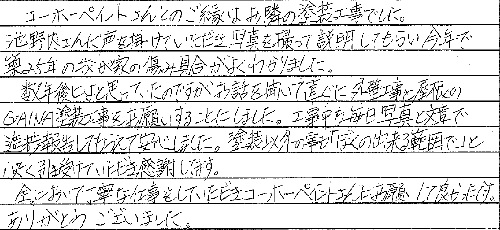 コーホーペイントさんとのご縁はお隣の塗装工事でした。
池野内さんに声を掛けていただき写真を撮って説明してもらい今年で
築25年の我が家の傷み具合がよくわかりました。
数年後にと思っていたのですがお話を聞いて直ぐに外壁工事と屋根の
GAINA塗装工事をお願いすることにしました。工事中も毎日写真と文章で
進捗報告してもらえて安心しました。塗装以外の事も「ぼくの出来る範囲で」と
快く引き受けていただき感謝してます。
全において丁寧な仕事をしていただきコーホーペイントさんにお願いして良かったです。
ありがとうございました。